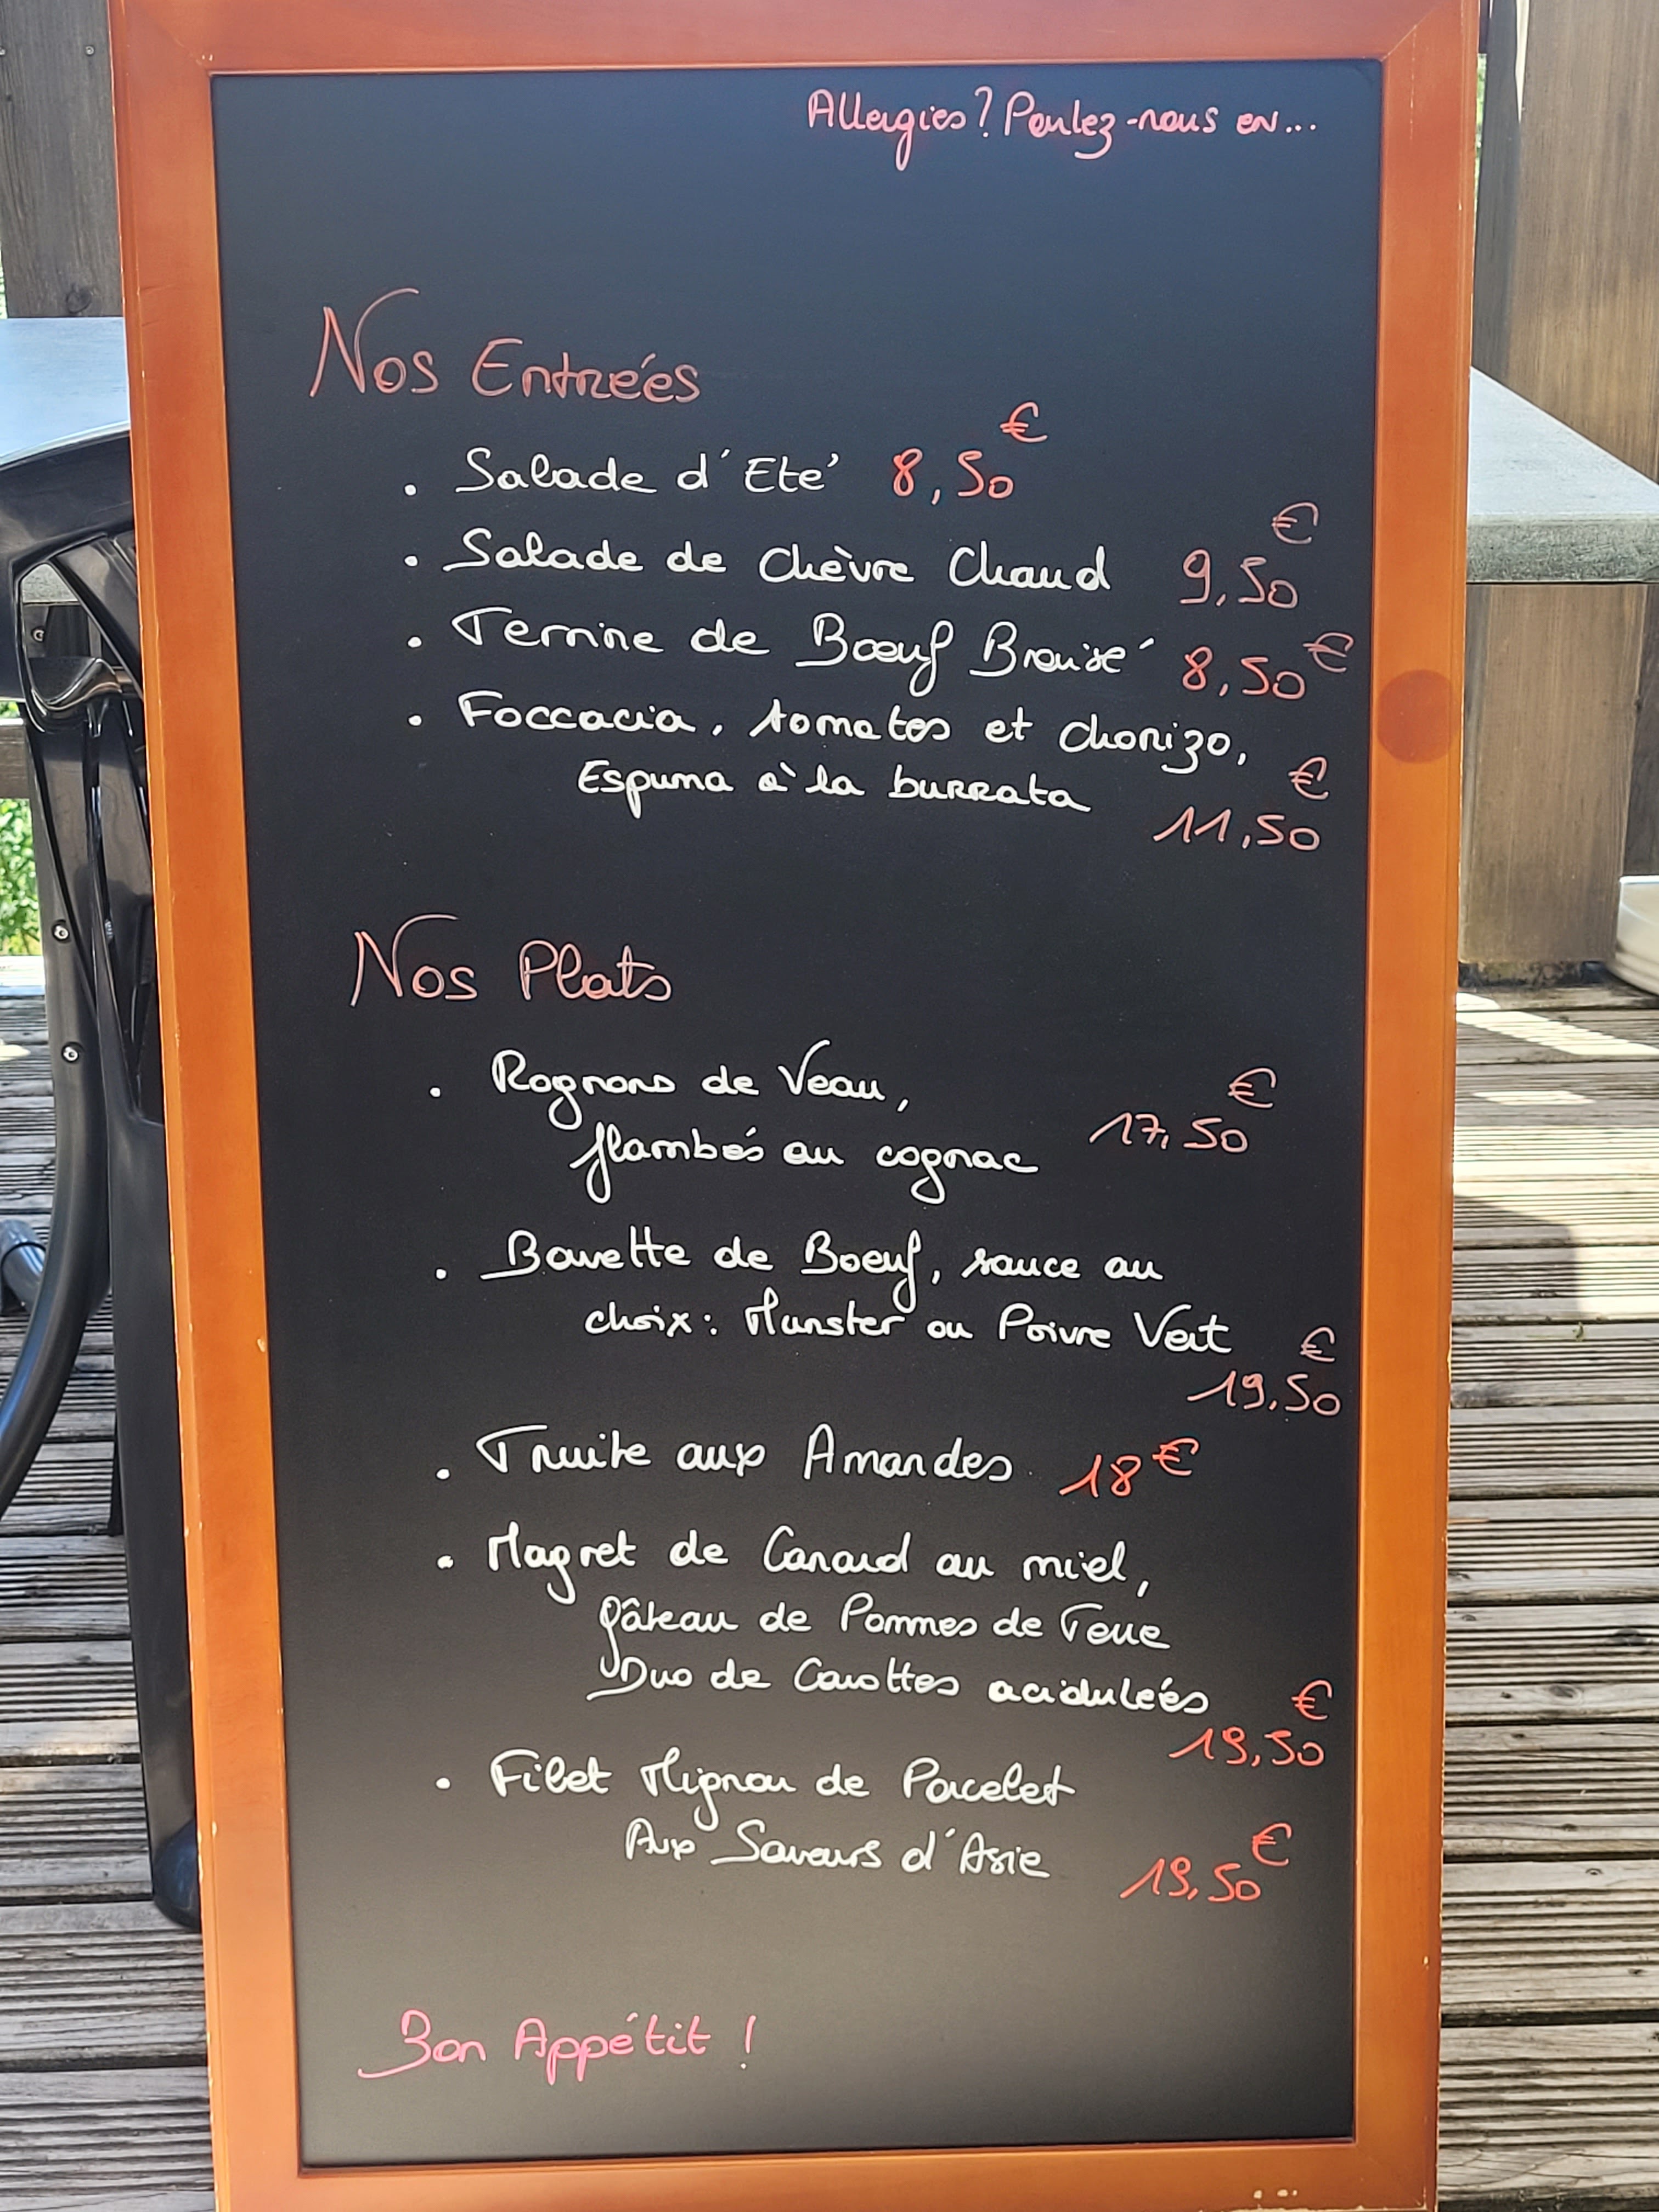 Allergies ? Parlez-nous en...
Nos Entrées
. Salade d'Eté 8,50€
. Salade de Chèvre Chaud 9,50€
. Terrine de Bœuf Braisé 8,50€
. Foccacia, tomates et chorizo,
Espuma à la burrata 11,50€
Nos Plats
. Rognons de Veau,
flambés au cognac 17,50€
. Bavette de Boeuf, sauce au
choix : Munster ou Poivre Vert
19,50€
. Truite aux Amandes 18€
. Magret de Canard au miel,
gâteau de Pommes de Terre
Duo de Carottes acidulées
19,50€
. Filet Mignon de Porcelet
Aux Saveurs d'Asie 19,50€
Bon Appétit !